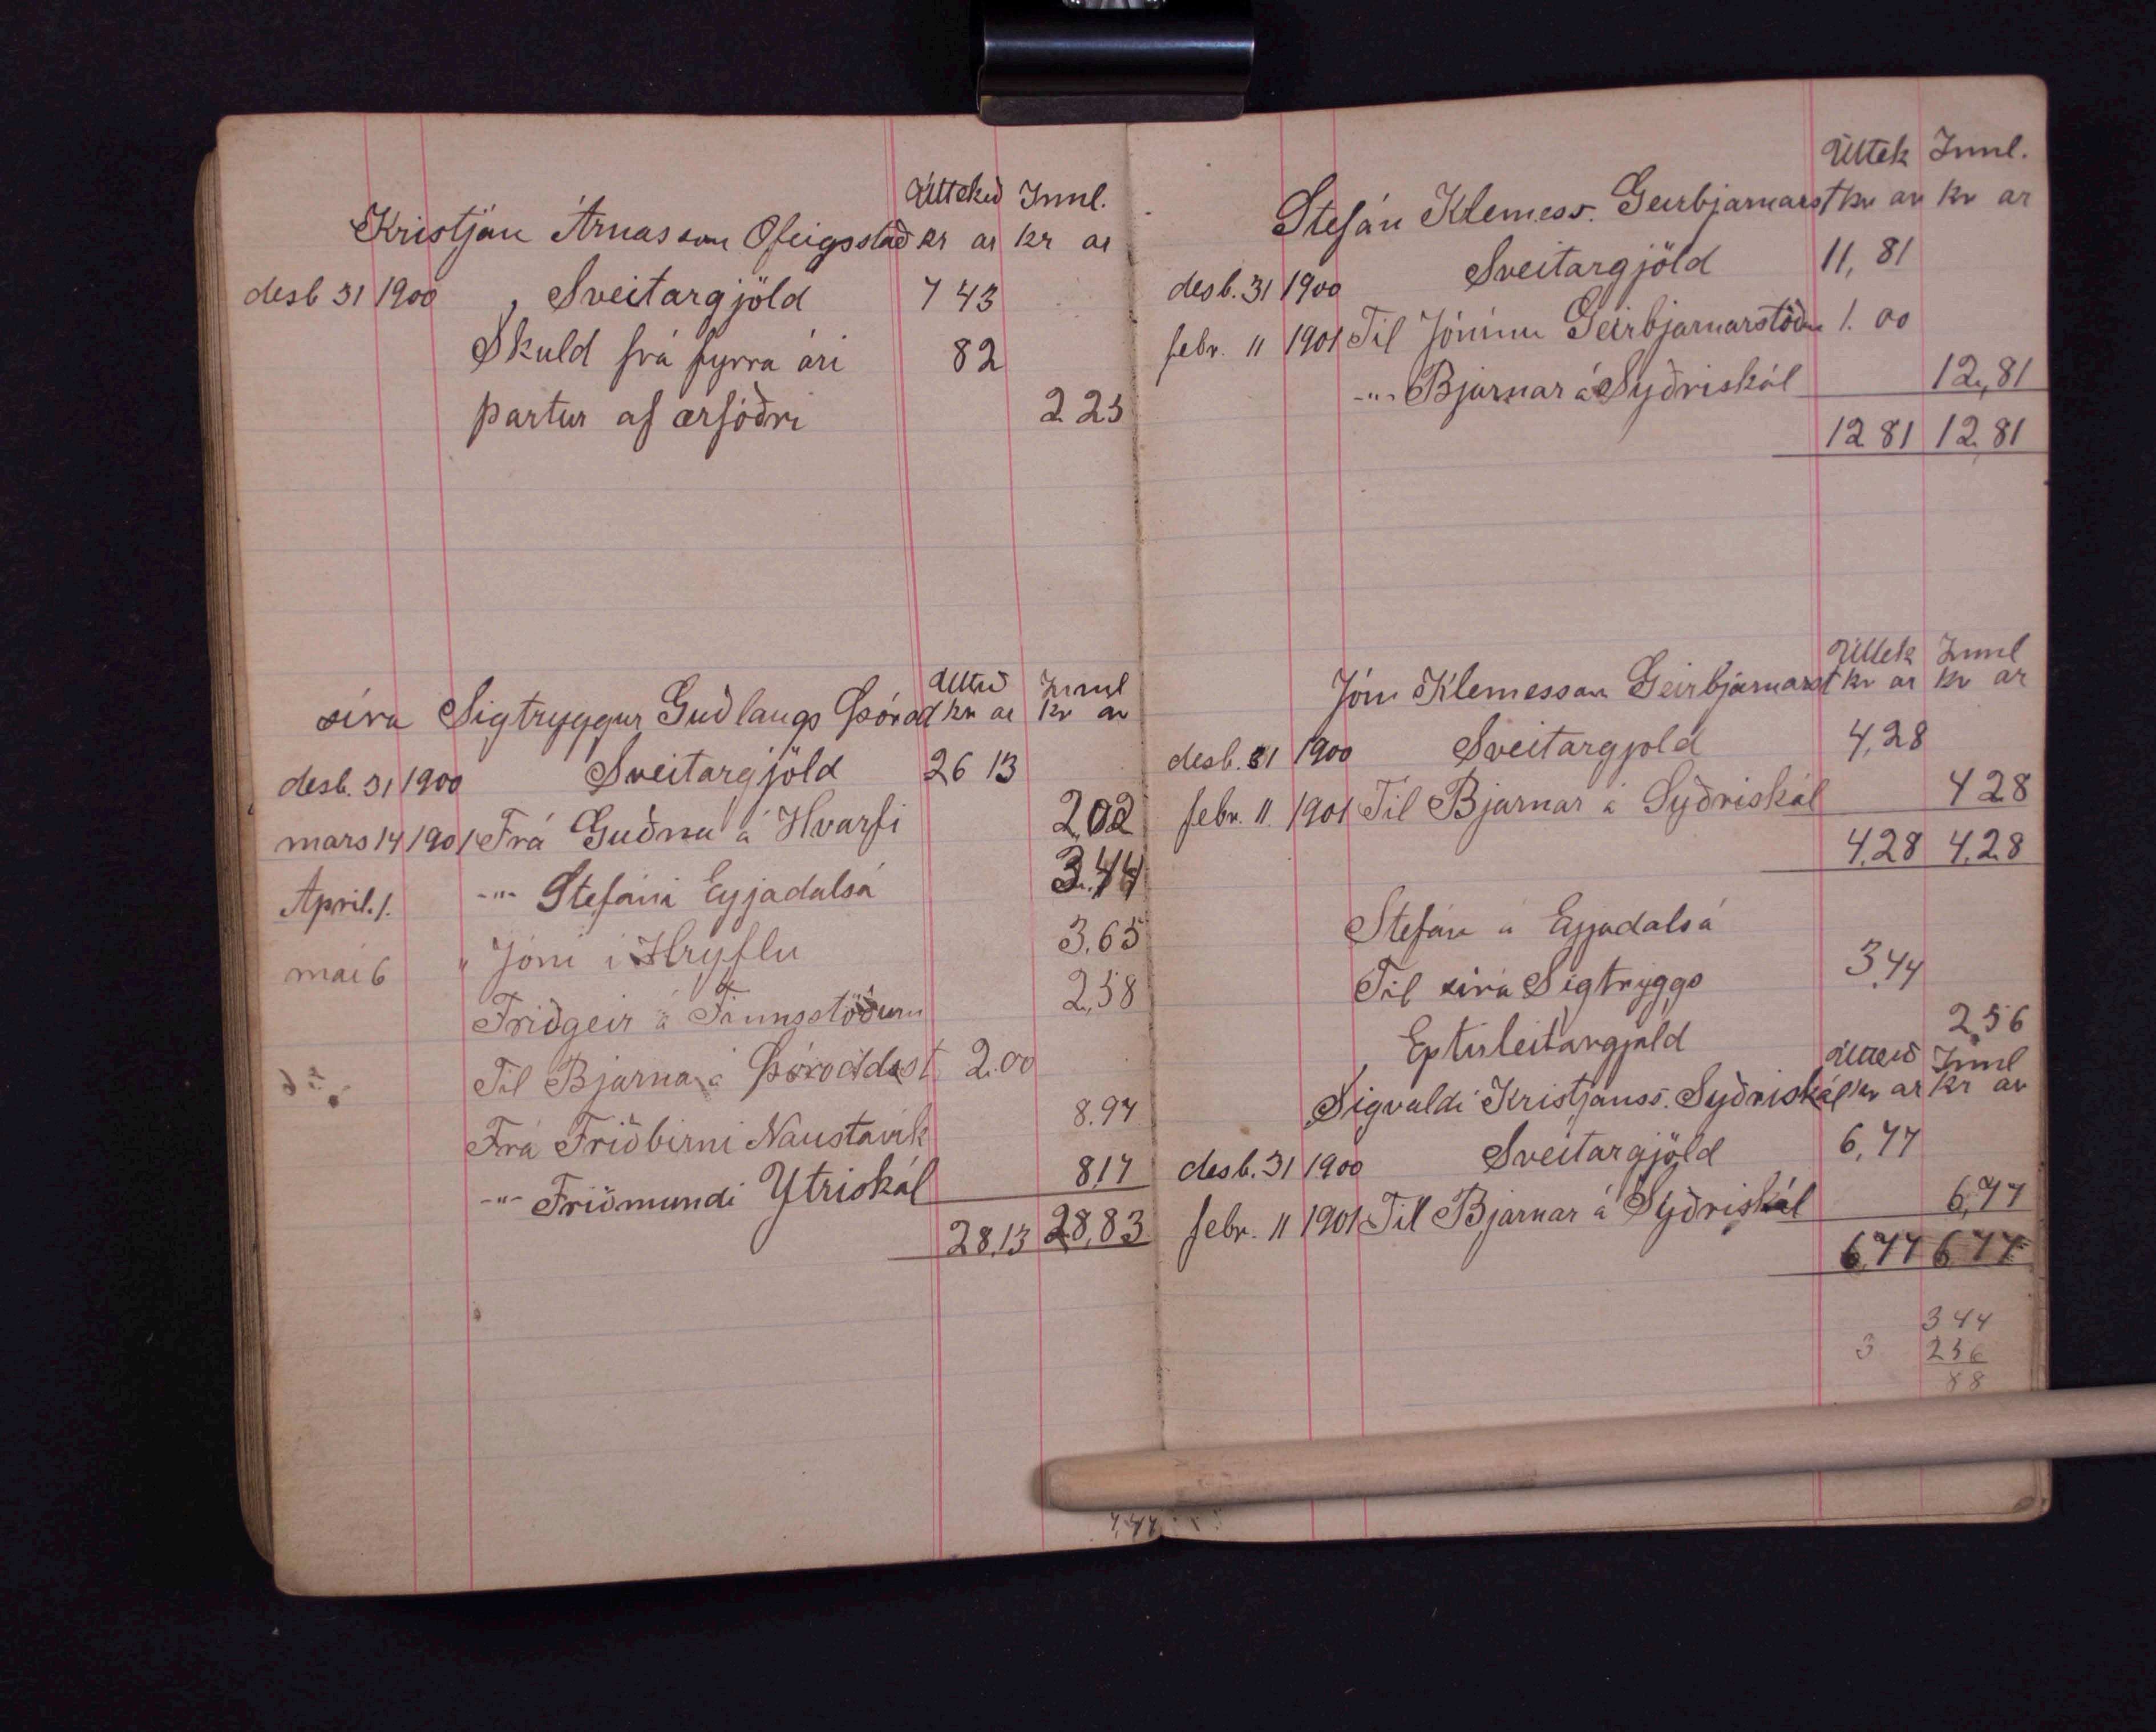 Úttekið Innl.
Kristján Árnasson Ofeigsstað kr ar kr ar
desb 31 1900 Sveitargjöld 7 43
Skuld frá fyrra ári 82
partur af ærfóðri 2 25
Úttið Innl
síra Sigtryggur Guðlaugs Þórod kr ar kr ar
desb. 31 1900 Sveitargjöld 26 13
mars 14 1901 Frá Guðna á Hvarfi 2,02
April. 1. -"- Stefáni Eyjadalsá 3.44
mai 6 " Jóni í Hryflu 3.65
Friðgeir á Finnsstöðum 2,58
Til Bjarna á Þóroddst 2.00
Frá Friðbirni Naustavík 8.97
-"- Friðmundi Ytriskál 8,17
28,13 28,83
7,47
Úttek Innl.
Stefán Klemess. Geirbjarnarst kr ar kr ar
desb. 31 1900 Sveitargjöld 11, 81
febr. 11 1901 Til Jónínu Geirbjarnarstöðu 1. 00
-"- Bjarnar á Syðriskál 12,81
12 81 12,81
Úttek Innl
Jón Klemesson Geirbjarnarst kr ar kr ar
desb. 31 1900 Sveitargjold 4,28
febr. 11. 1901 Til Bjarnar á Syðriskál 4 28
4,28 4,28
Stefán á Eyjadalsá
Til síra Sigtryggs 3,44
Eptirleitargjald 2,56
Útteið Innl
Sigvaldi Kristjánss. Syðriskál kr ar kr ar
desb. 31 1900 Sveitargjöld 6,77
febr. 11 1901 Til Bjarnar á Syðriskál 6,77
6,77 6 77
3 44
3 2 56
88